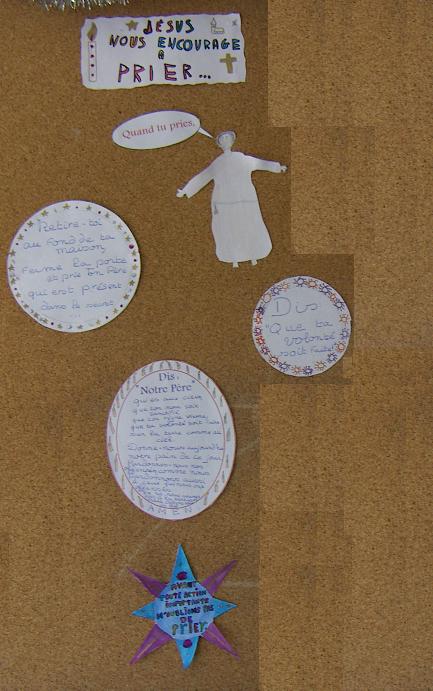 JÉSUS
NOUS ENCOURAGE
À
PRIER...
Quand tu pries,
Retire-toi
au fond de ta
maison,
Ferme la porte
et prie ton Père
qui est présent
dans le secret
...
Dis
"Que ta
volonté
soit faite"
Dis:
"Notre Père"
qui es aux cieux
que ton nom soit
sanctifié
que ton règne vienne,
que ta volonté soit faite
sur la terre comme au
ciel.
Donne-nous aujourd'hui
notre pain de ce jour
Pardonne-nous nos
offenses comme nous
pardonnons aussi
AMEN
AVANT
TOUTE ACTION
IMPORTANTE
N'OUBLIONS PAS
DE
PRIER